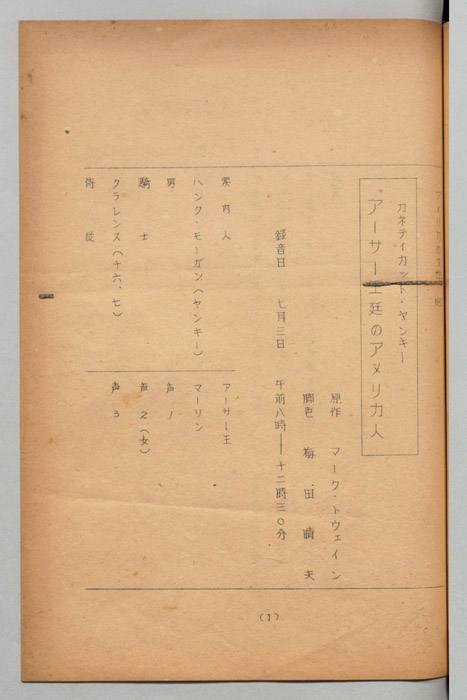 カネティカット・ヤンキー
アーサー王廷のアメリカ人
原作 マーク・トウェイン
脚色 梅田晴夫
録音日 七月三日 午前八時——十二時三〇分
案内人
ハンク・モーガン(ヤンキー)
男
騎士
クラレンス(十六、七)
侍従
アーサー王
マーリン
声 1
声 2(女)
声 3
(1)